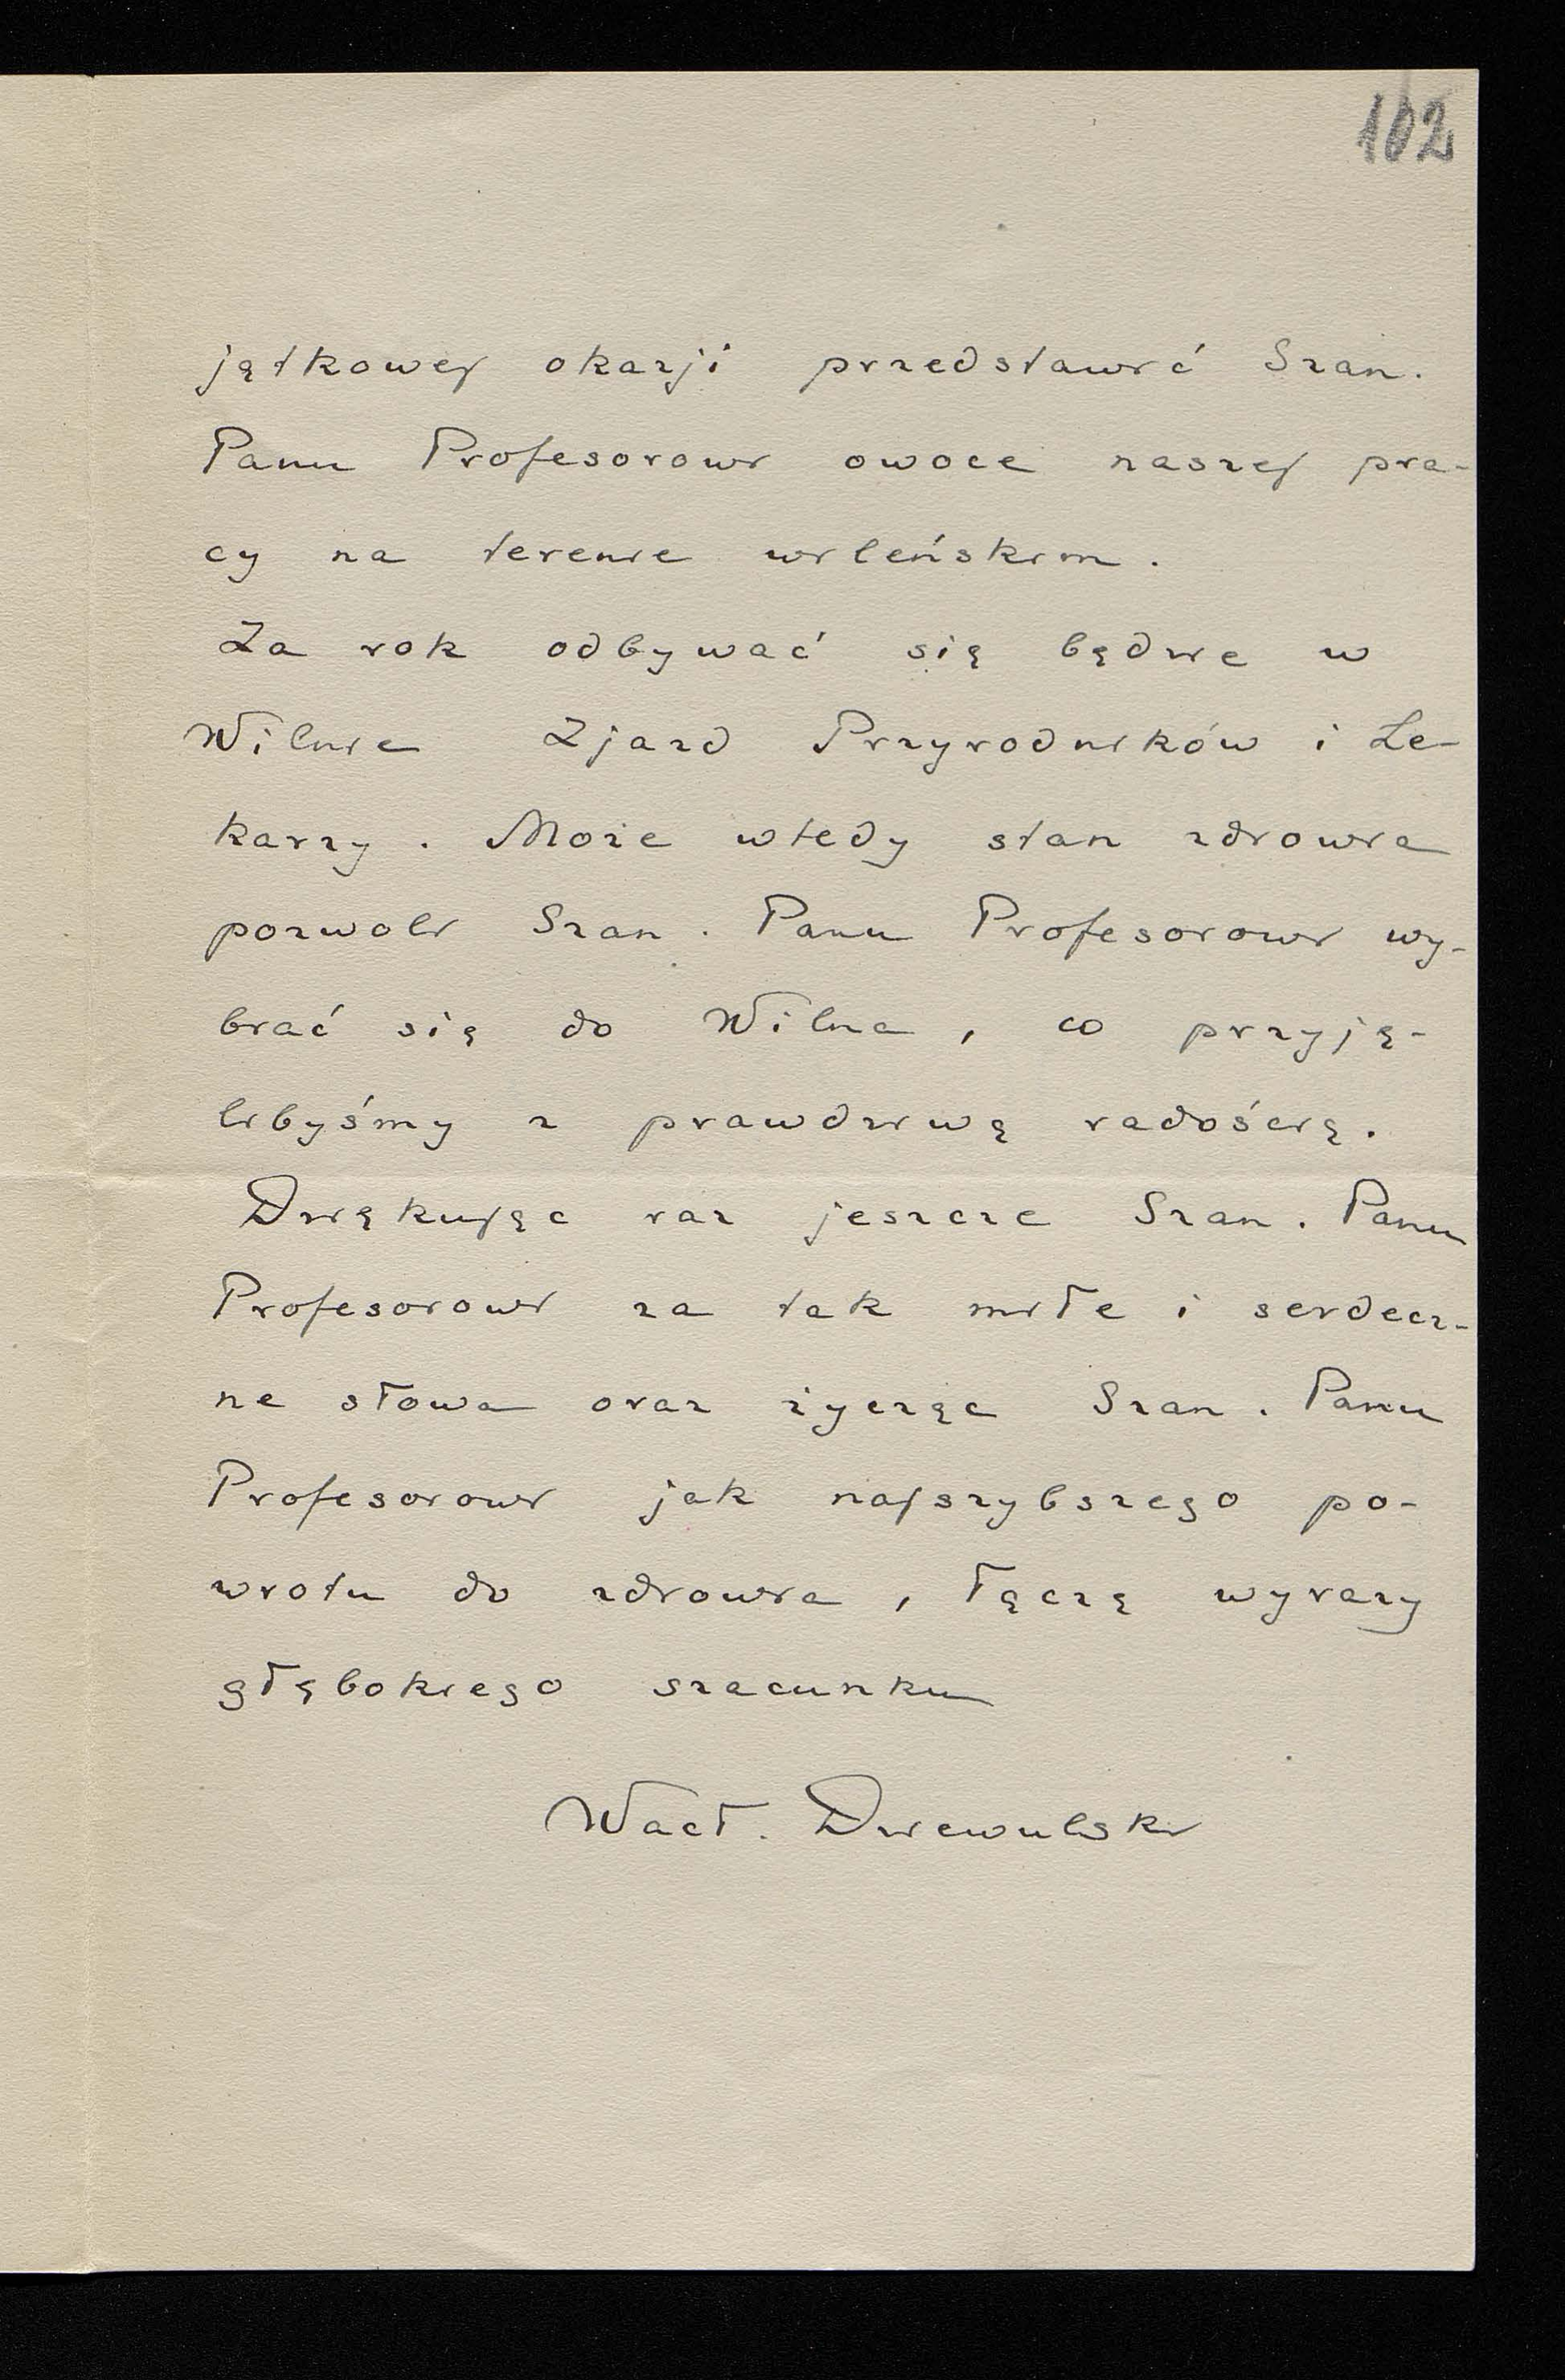 102
jątkowej okazji przedstawić Szan.
Panu Profesorowi owoce naszej pra-
cy na terenie wileńskim.
Za rok odbywać się będzie w
Wilnie Zjazd Przyrodników i Le-
karzy. Może wtedy stan zdrowia
pozwoli Szan. Panu Profesorowi wy-
brać się do Wilna, co przyję-
libyśmy z prawdziwą radością.
Dziękując raz jeszcze Szan. Panu
Profesorowi za tak miłe i serdecz-
ne słowa oraz życząc Szan. Panu
Profesorowi jak najszybszego po-
wrotu do zdrowia, łączę wyrazy
głębokiego szacunku
Wacł. Dziewulski